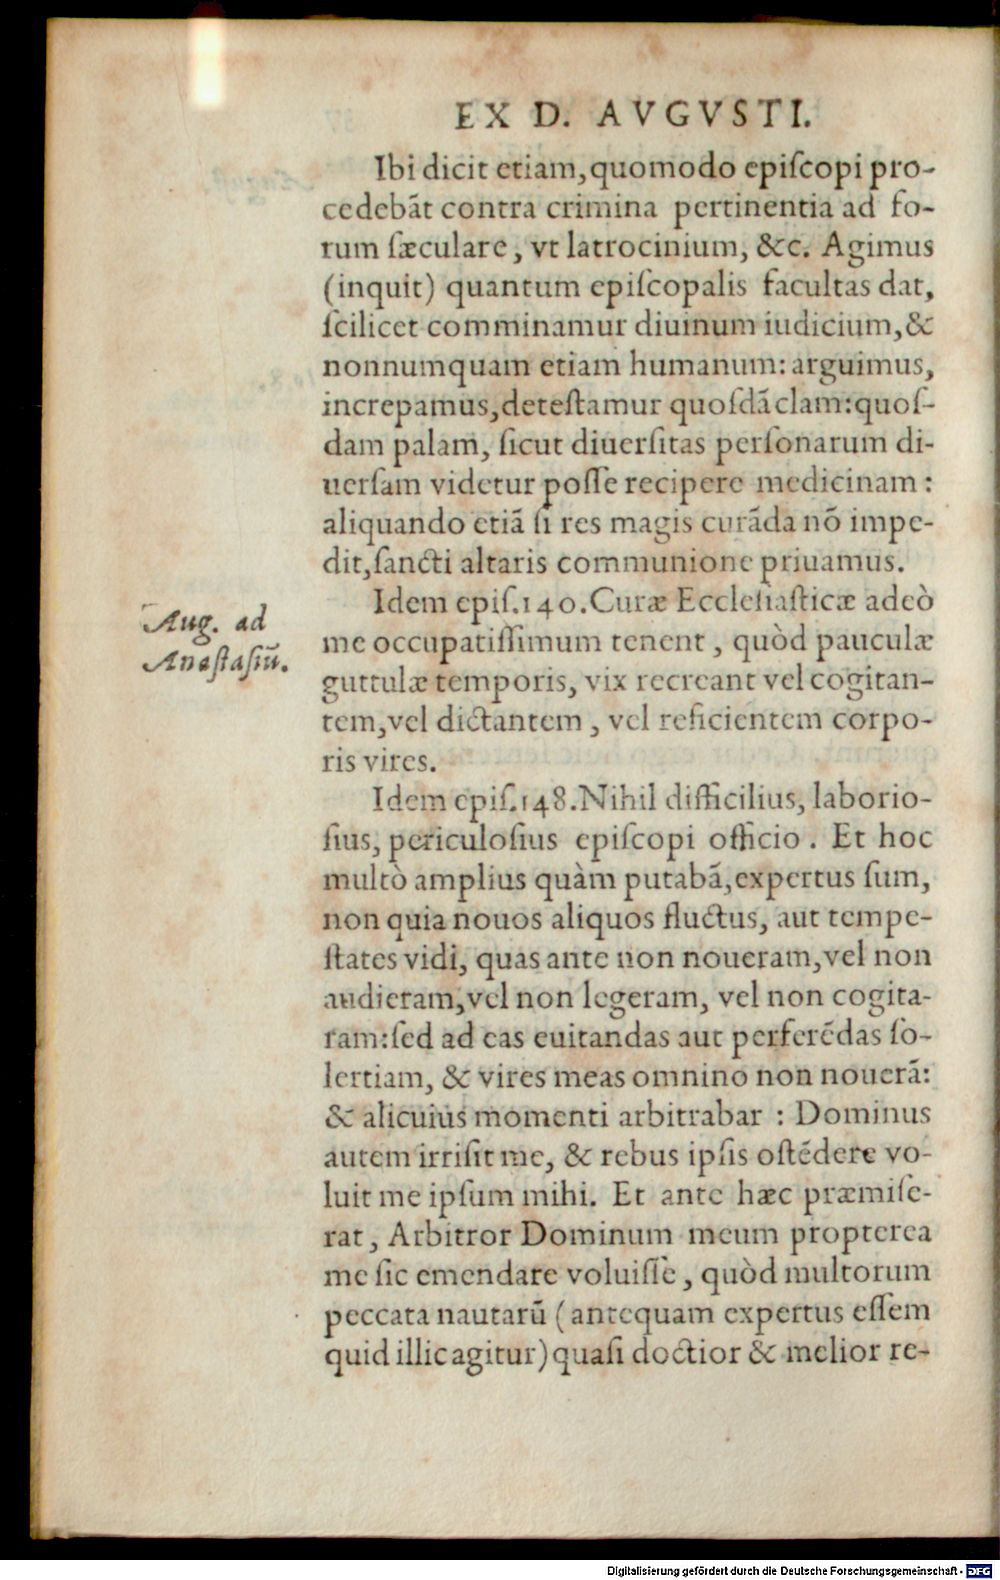 EX D. AVGVSTI.
Ibi dicit etiam, quomodo epiſcopi pro-
cedebãt contra crimina pertinentia ad fo-
rum ſæculare, vt latrocinium, &c. Agimus
(inquit) quantum epiſcopalis facultas dat,
ſcilicet comminamur diuinum iudicium, &
nonnumquam etiam humanum: arguimus,
increpamus, deteſtamur quoſdã clam: quoſ-
dam palam, ſicut diuerſitas perſonarum di-
uerſam videtur poſſe recipere medicinam:
aliquando etiã ſi res magis curãda nõ impe-
dit, ſancti altaris communione priuamus.
Idem epiſ. 140. Curæ Eccleſiaſticæ adeò
Aug. ad
Anaſtaſiũ.
me occupatiſſimum tenent, quòd pauculæ
guttulæ temporis, vix recreant vel cogitan-
tem, vel dictantem, vel reficientem corpo-
ris vires.
Idem epiſ. 148. Nihil difficilius, laborio-
ſius, periculoſius epiſcopi officio. Et hoc
multò amplius quàm putabã, expertus ſum,
non quia nouos aliquos fluctus, aut tempe-
ſtates vidi, quas ante non noueram, vel non
audieram, vel non legeram, vel non cogita-
ram: ſed ad eas euitandas aut perferẽdas ſo-
lertiam, & vires meas omnino non nouerã:
& alicuius momenti arbitrabar : Dominus
autem irriſit me, & rebus ipſis oſtẽdere vo-
luit me ipſum mihi. Et ante hæc præmiſe-
rat, Arbitror Dominum meum propterea
me ſic emendare voluiſſe, quòd multorum
peccata nautarũ (antequam expertus eſſem
quid illic agitur) quaſi doctior & melior re-
Digitalisierung gefördert durch die Deutsche Forschungsgemeinschaft - DFG